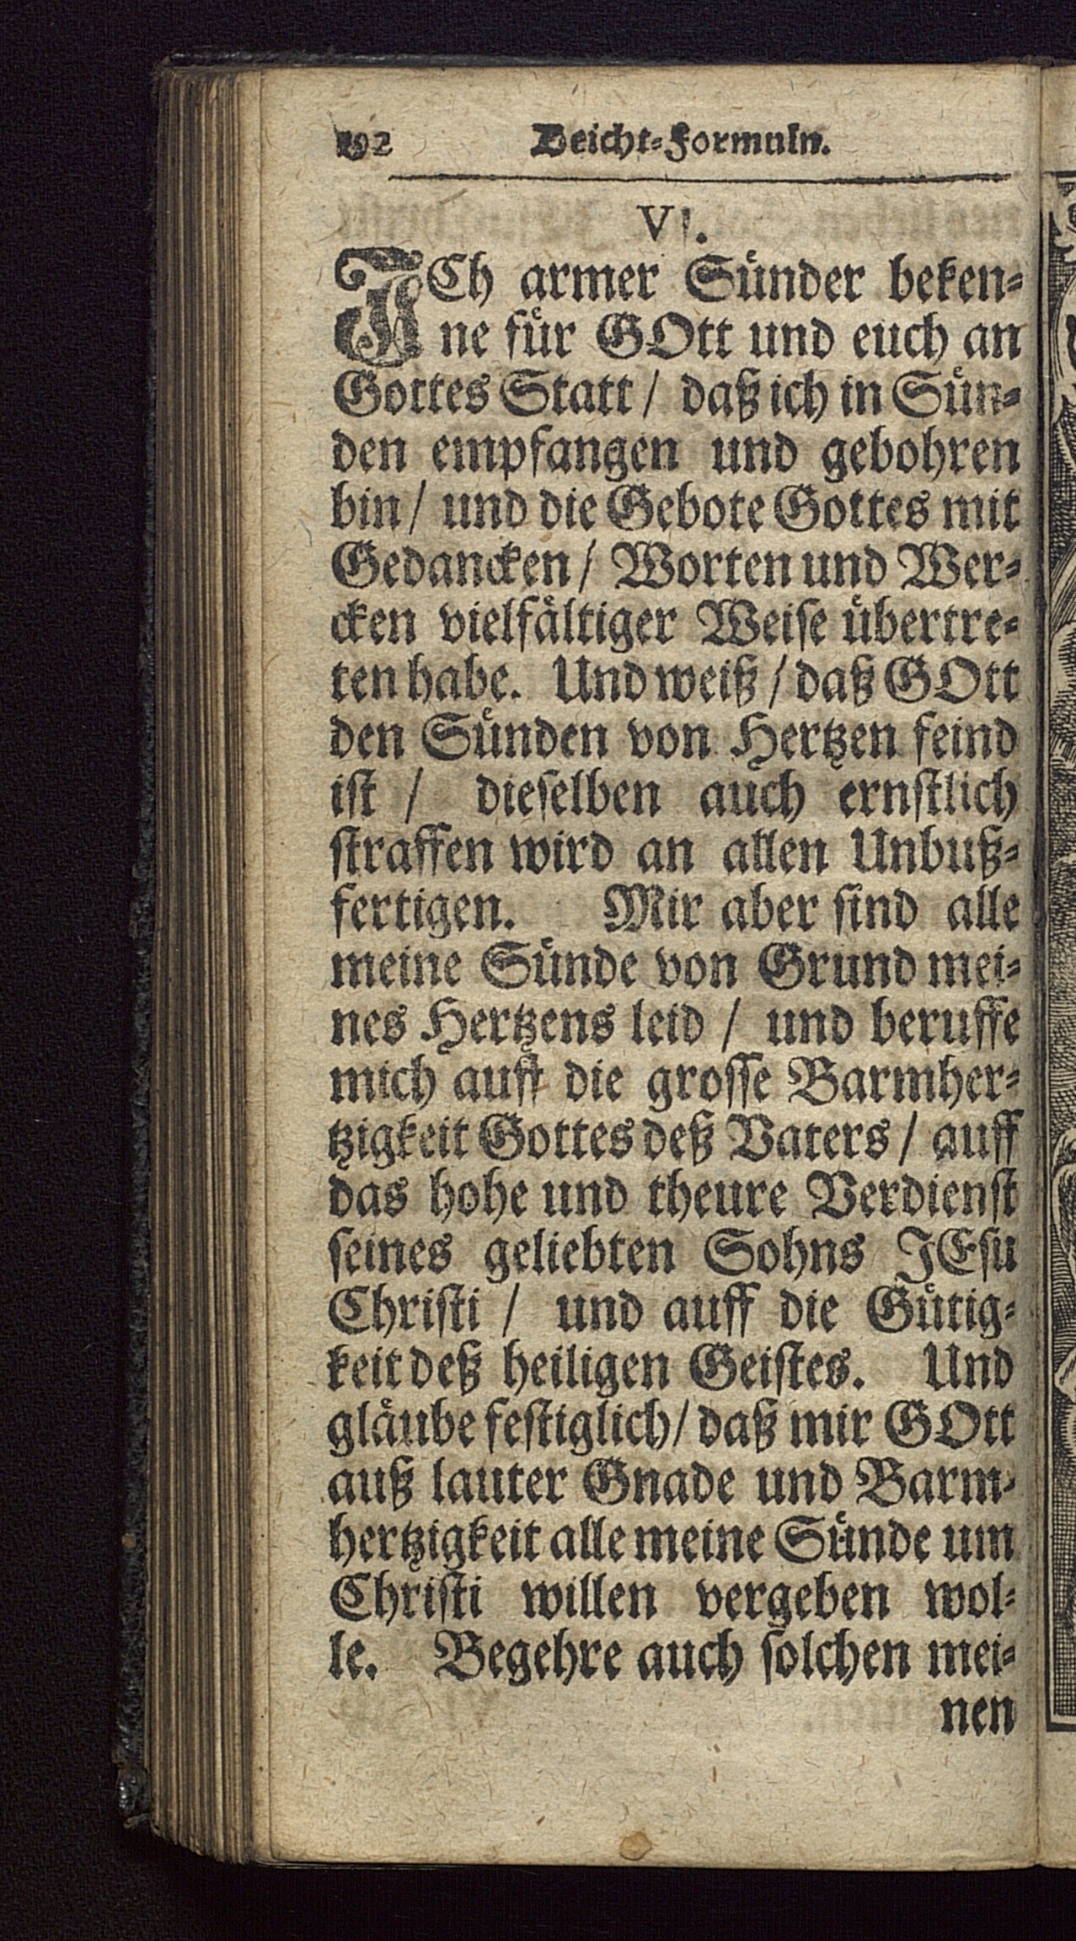 192 Beicht-Formuln.
VI.
ICh armer Sünder beken-
ne für GOtt und euch an
Gottes Statt / daß ich in Sün-
den empfangen und gebohren
bin / und die Gebote Gottes mit
Gedancken / Worten und Wer-
cken vielfältiger Weise übertre-
ten habe. Und weiß / daß GOtt
den Sünden von Hertzen feind
ist / dieselben auch ernstlich
straffen wird an allen Unbuß-
fertigen. Mir aber sind alle
meine Sünde von Grund mei-
nes Hertzens leid / und beruffe
mich auff die grosse Barmher-
tzigkeit Gottes deß Vaters / auff
das hohe und theure Verdienst
seines geliebten Sohns JEsu
Christi / und auff die Gütig-
keit deß heiligen Geistes. Und
gläube festiglich / daß mir GOtt
auß lauter Gnade und Barm-
hertzigkeit alle meine Sünde um
Christi willen vergeben wol-
le. Begehre auch solchen mei-
nen